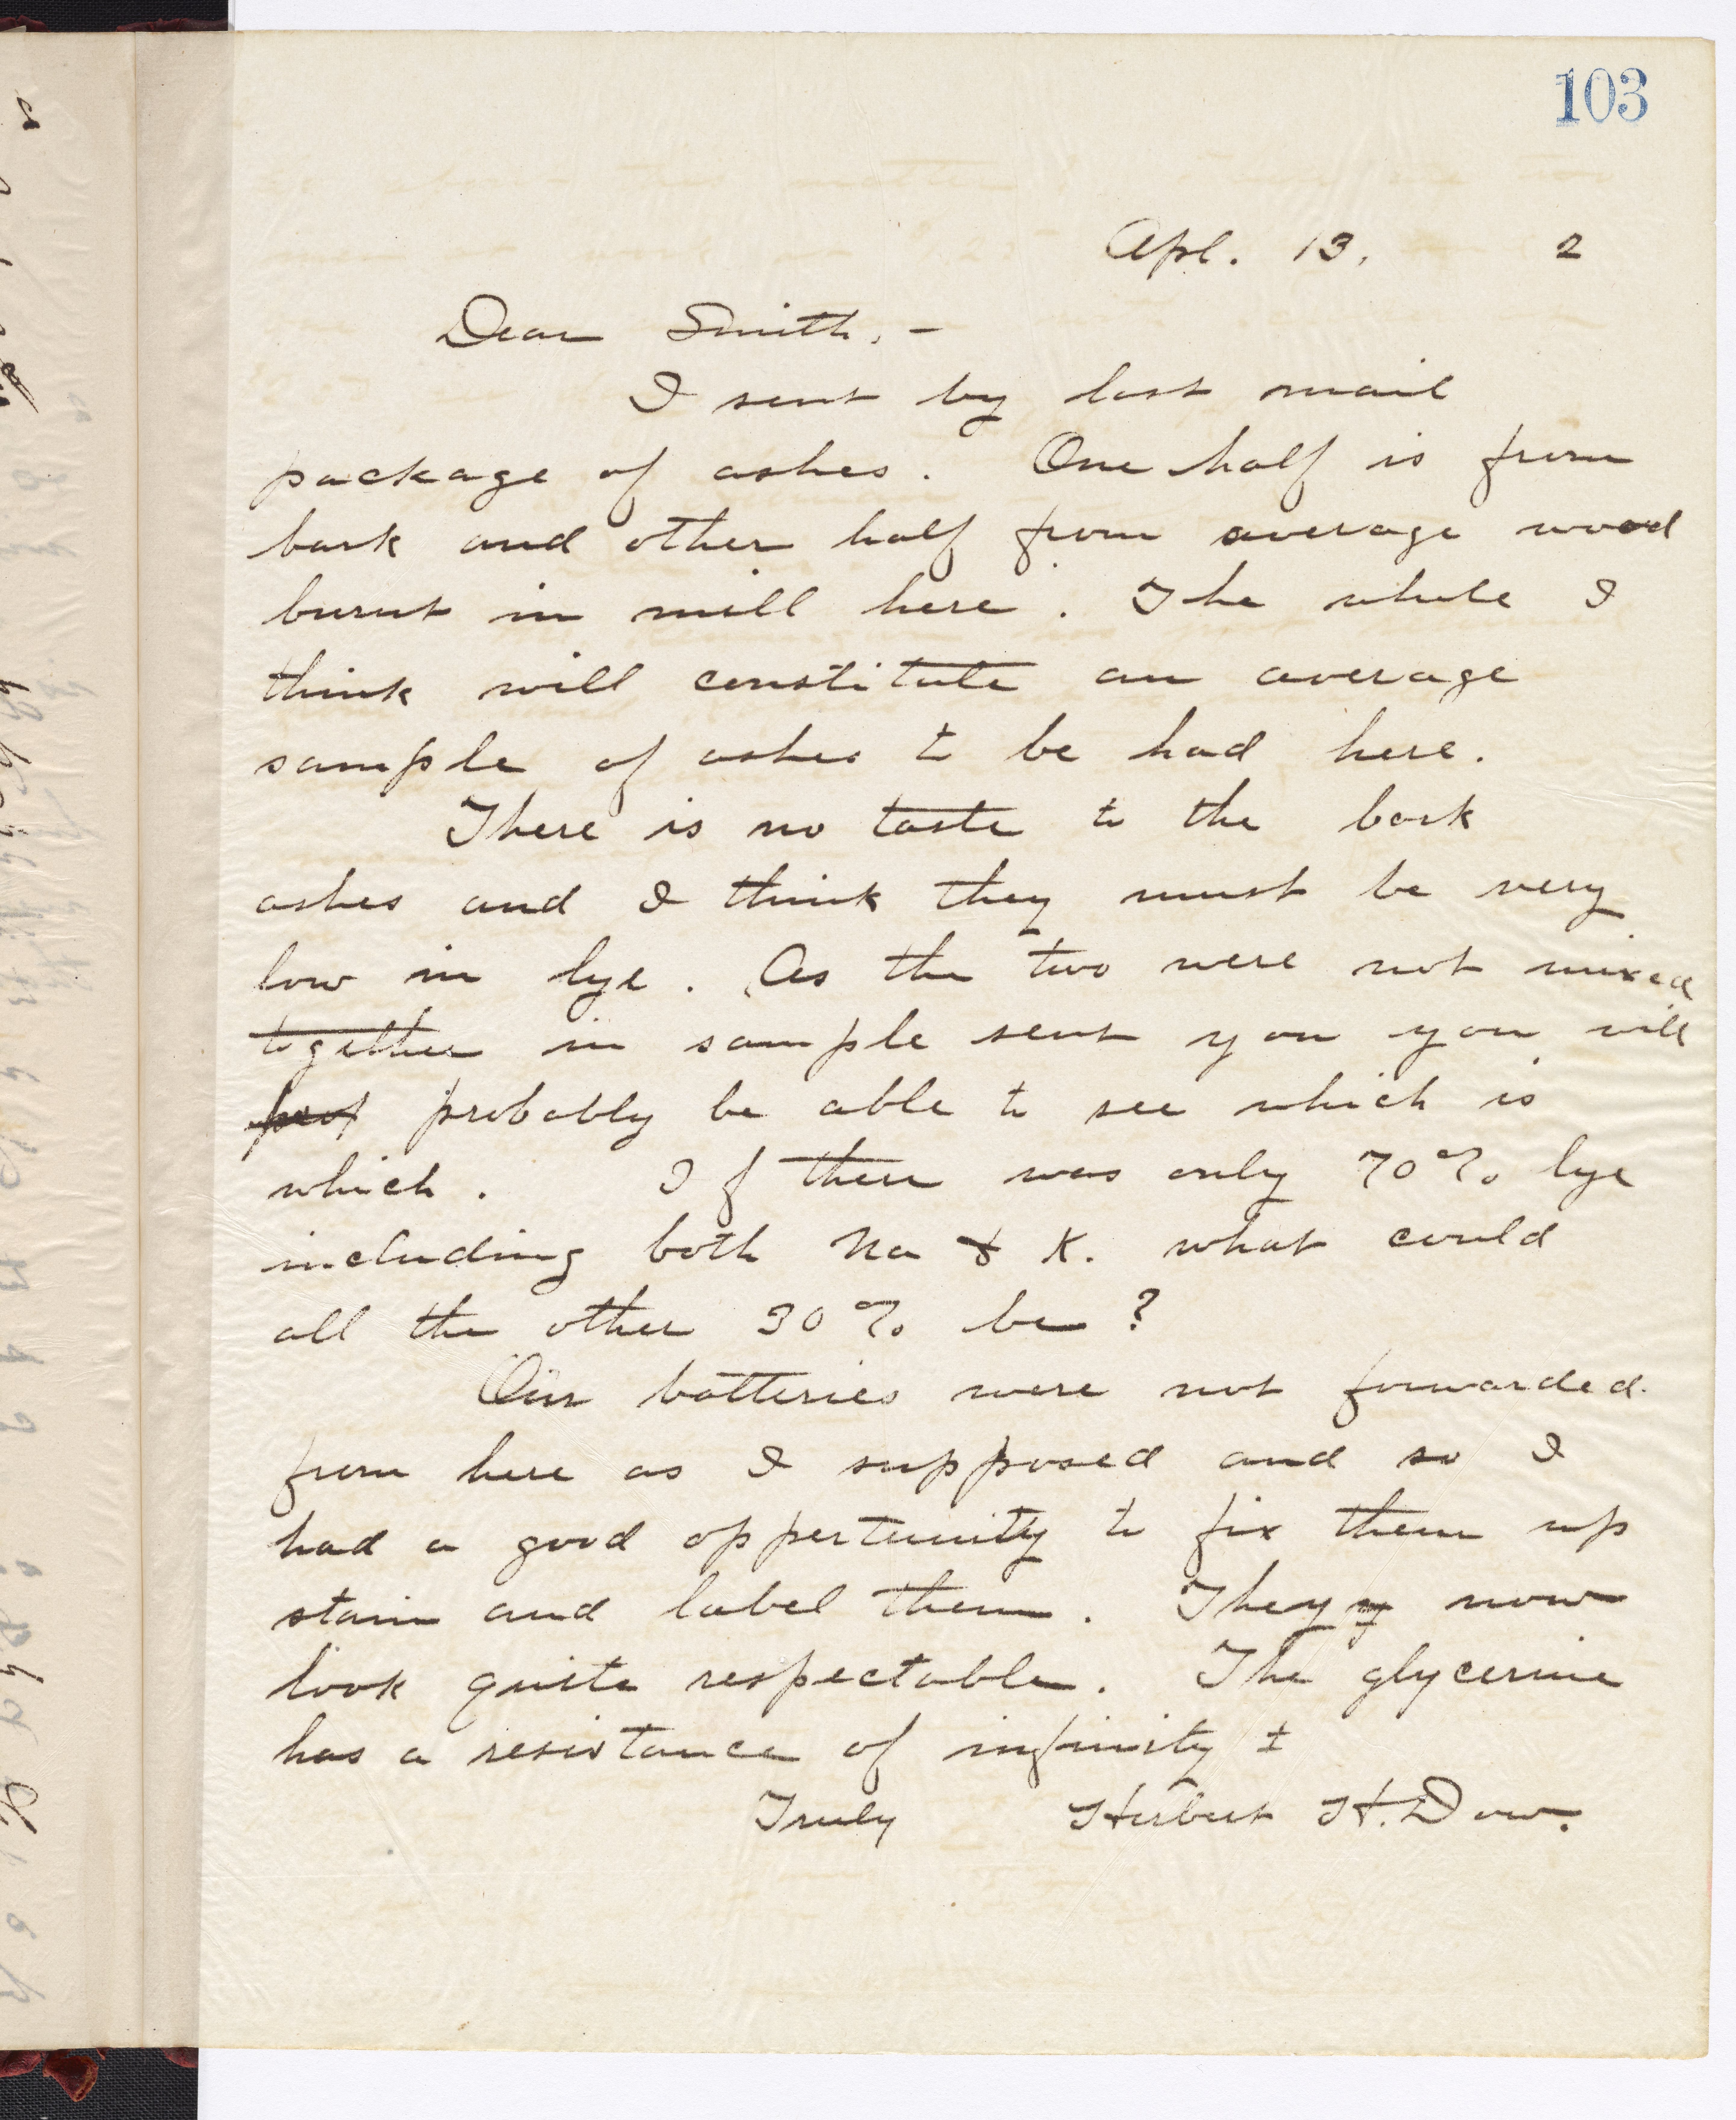 103
Apl. 13. 2
Dear Smith, -
I sent by last mail
package of ashes. One half is from
bark and other half from average wood
burnt in mill here. The whole I
think will constitute an average
sample of ashes to be had here.
There is no taste to the bark
ashes and I think they must be very
low in lye. As the two were not mixed
together in sample sent you you will
prob probably be able to see which is
which. If there was only 70% lye
including both Na & K. what could
all the other 30% be?
Our batteries were not forwarded
from here as I supposed and so I
had a good oppertunity to fix them up
stain and label them. They now
look quite respectable. The glycerine
has a resistance of infinity ±
Truly Herbert H. Dow.